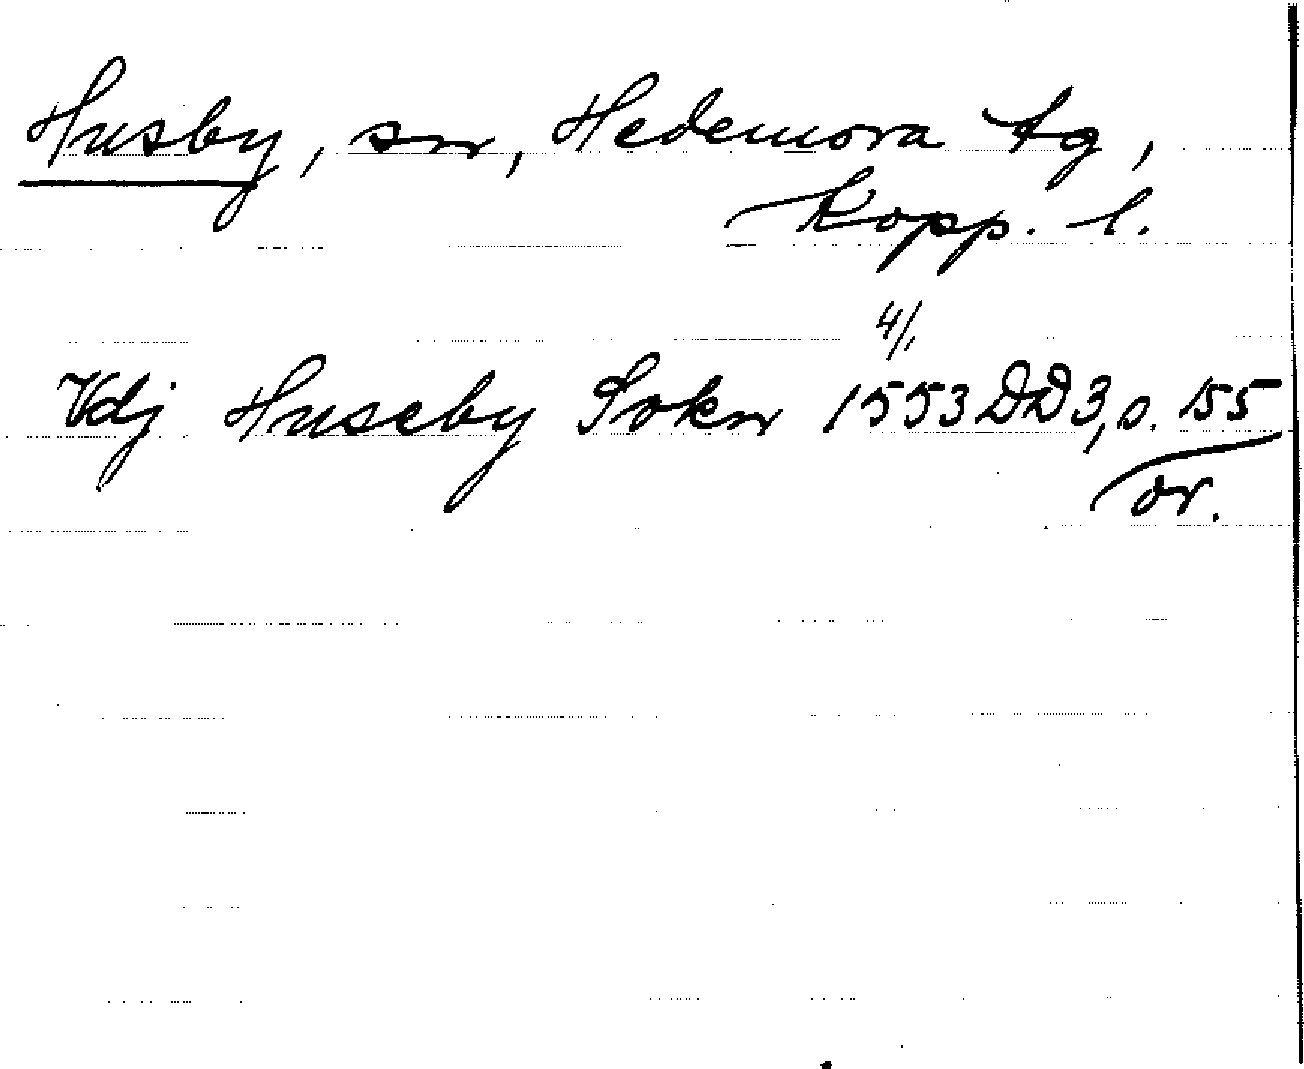 Husby, sn, Hedemora tg,
Kopp. l.
4/1
Vdj Huseby Sokn 1553 DD 3, s. 155
or.